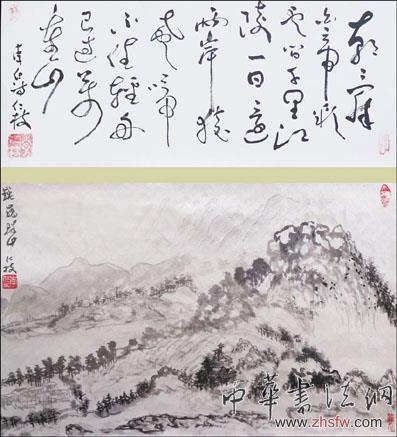 朝辭
白帝彩
雲間千里江
陵一日還
兩岸猿
聲啼
不住輕舟
已過萬
重山
李白詩 仁枝
仁枝
中華書法網
www.zhsfw.com